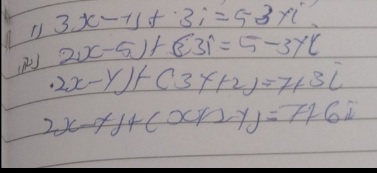 1) 3x-1)+3i=5 3yi
2) 2x-5)+(3i=5-3yi
2x-y)+(3y+2)=7+3i
2x-y)+(x+2y)=7+6i